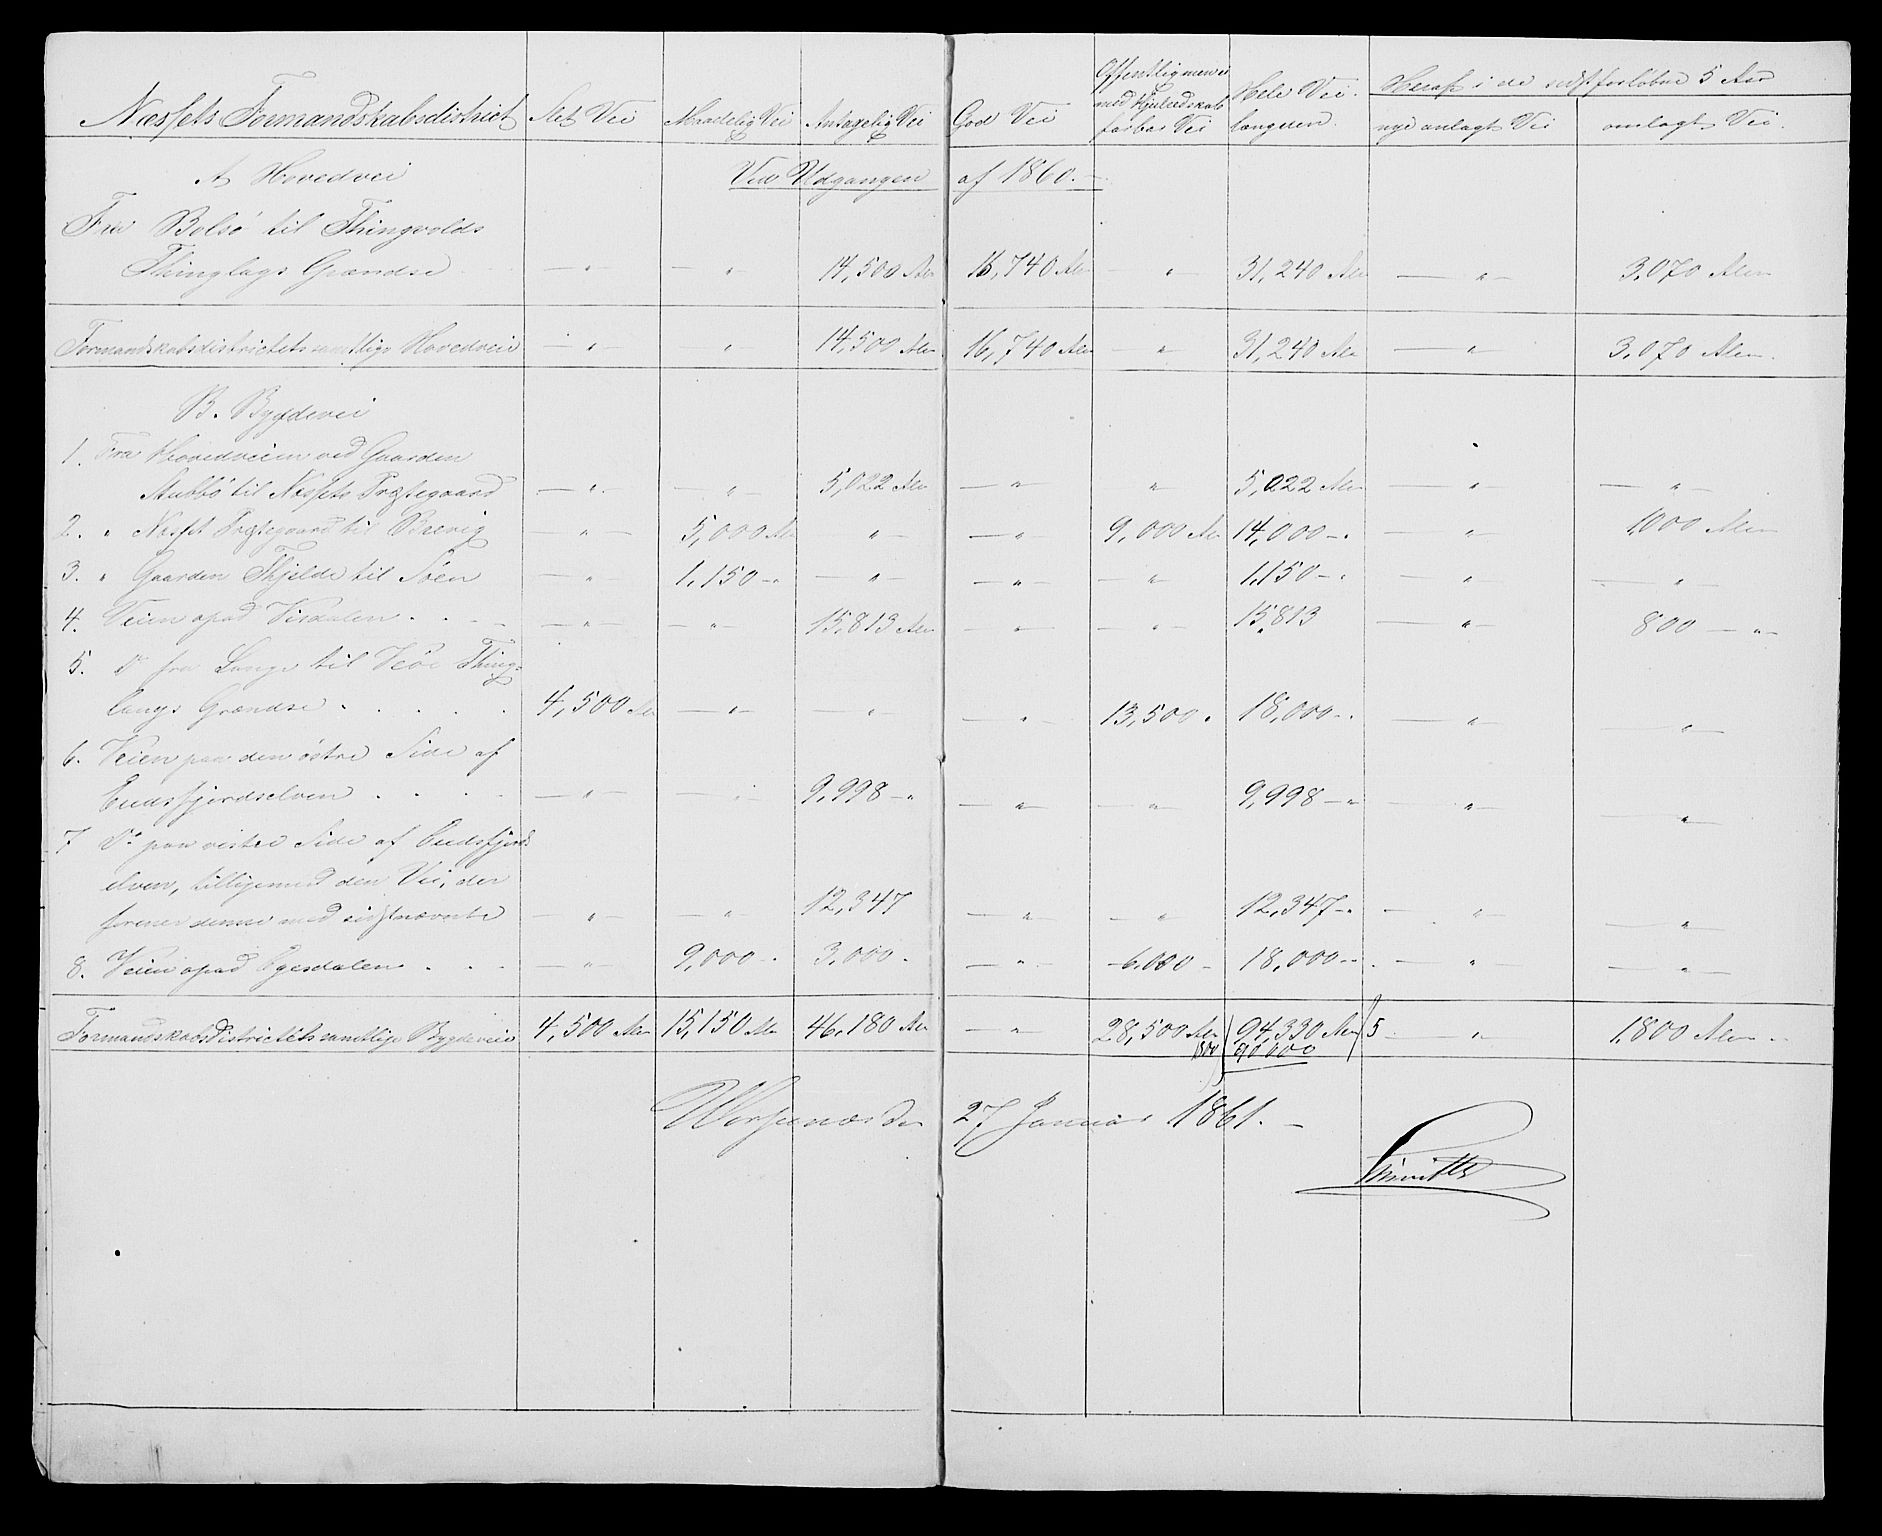 Næssets Formandskabsdistrict | Slet Vei | Maadelig Vei | Antagelig Vei | God Vei | Offentlig men ei med Hjulredskab farbar Vei | Hele Vei længden | Heraf i de sidst forløbne 5 Aar
nye anlagt Vei | omlagt Vei.
A Hovedvei | Ved Udgangen af 1860.—
Fra Bolsø til Thingvolds
Thinglags Grændse | —"— | —"— | 14,500 Alen | 16,740 Alen | —"— | 31,240 Alen | —"— | 3,070 Alen
Formandskabsdistrictets samtlige Hovedveie | —"— | " | 14,500 Alen | 16,740 Alen | —"— | 31,240 Alen | —"— | 3,070 Alen.
B. Bygdevei
1. Fra Hovedveien ved Gaarden
Stubbø til Næssets Præstegaard | —"— | —"— | 5,022 Alen | —"— | " | 5,022 Alen | —"— | —"—
2. " Næsset Præstegaard til Brevig | —"— | 5,000 Alen | "— | —"— | 9,000 Alen | 14,000 —" | —"— | 1000 Alen
3. " Gaarden Tjelde til Søen | —"— | 1,150 —" | —"— | —"— | —"— | 1,150 —" | —"— | —"—
4. Veien opad Visdalen . . . | —"— | —"— | 15,813 Alen | —"— | —"— | 15,813 " | —"— | 800 —"—
5. Do fra Lange til Veøe Thing-
laugs Grændse . . . . . | 4,500 Alen | —"— | —"— | —"— | 13,500 " | 18,000 —" | —"— | —"—
6. Veien paa den østre Side af
Eudsfjordselven . . . . | —"— | —"— | 9,998 —" | —"— | —"— | 9,998 —" | —"— | —"—
7 Do paa vestre Side af Eudsfjords
elven, tilligemed den Vei, der
forener denne med sidstnævnte | —"— | —"— | 12,347 | —"— | —"— | 12,347 —" | —"— | —"—
8. Veien opad Eyesdalen . . . | —"— | 9,000 —" | 3,000 " | —"— | —6,000 — | 18,000 —" | —"— | —"—
Formandskabsdistrictets samtlige Bygdeveie | 4,500 Alen | 15,150 Alen | 46,180 Alen | —"— | 28,500 Alen | 94,330 Alen | 5 —"— | 1,800 Alen
90000
27 Januar 1861.—